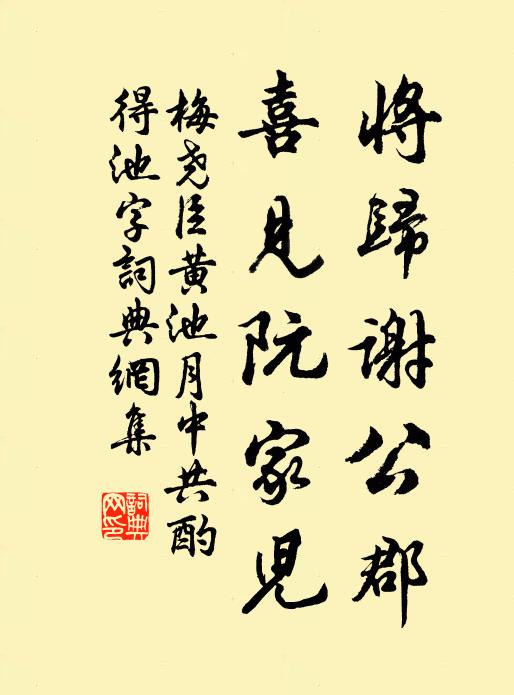 將歸謝公郡
喜見阮家児
梅堯臣黄池月中共酌
得池字詞典網集
詞典网印